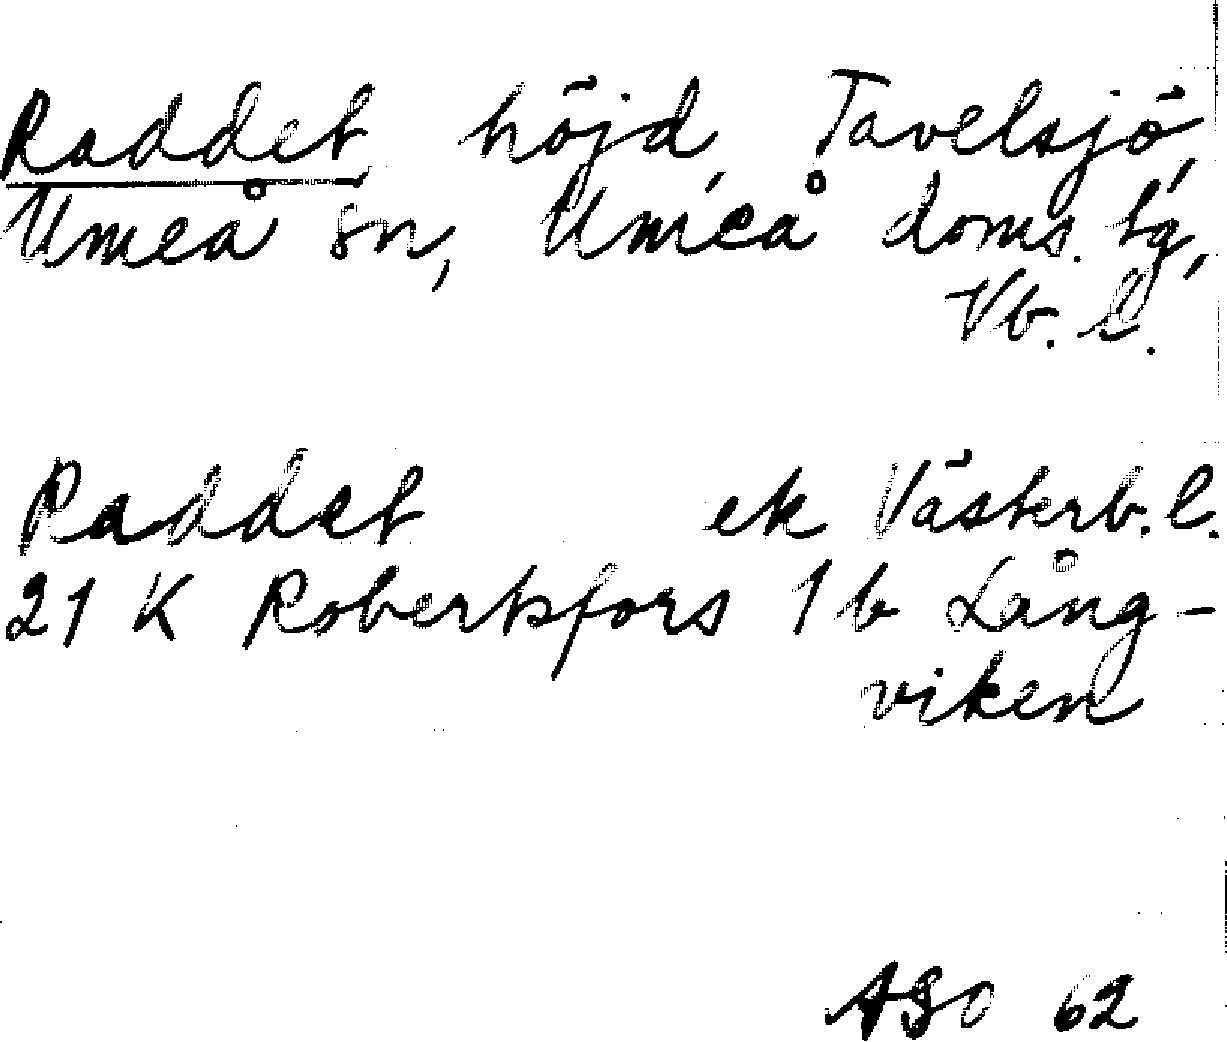 Raddet, höjd, Tavelsjö,
Umeå sn, Umeå doms. tg,
Vb. l.
Raddet ek Västerb. l.
21 K Robertsfors 1 b Lång-
viken
ASO 62